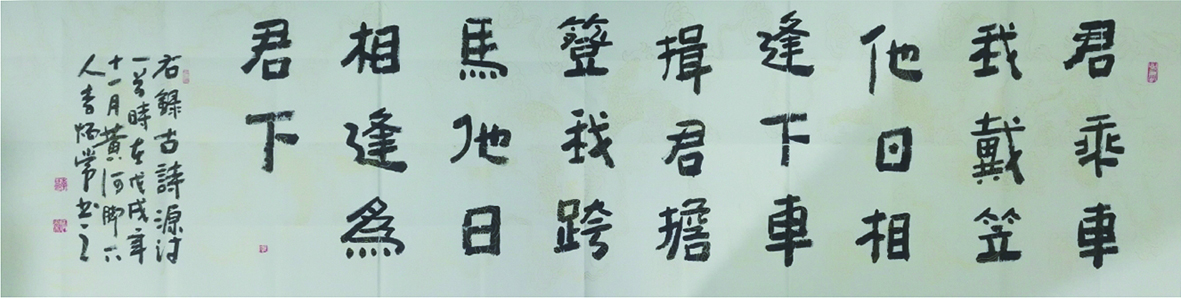 君乘車
我戴笠
他日相
逢下車
揖君擔
簦我跨
馬他日
相逢為
君下
右錄古詩源詩
一首時在戊戌年
十一月黃河腳下
人常书之